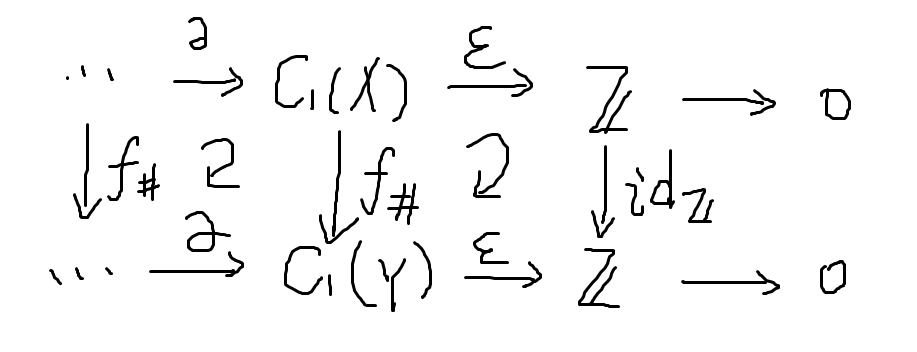 ⋯ ∂→ C₁(X) ε→ ℤ → 0
↓ f# ↻ ↓ f# ↻ ↓ id_ℤ
⋯ ∂→ C₁(Y) ε→ ℤ → 0